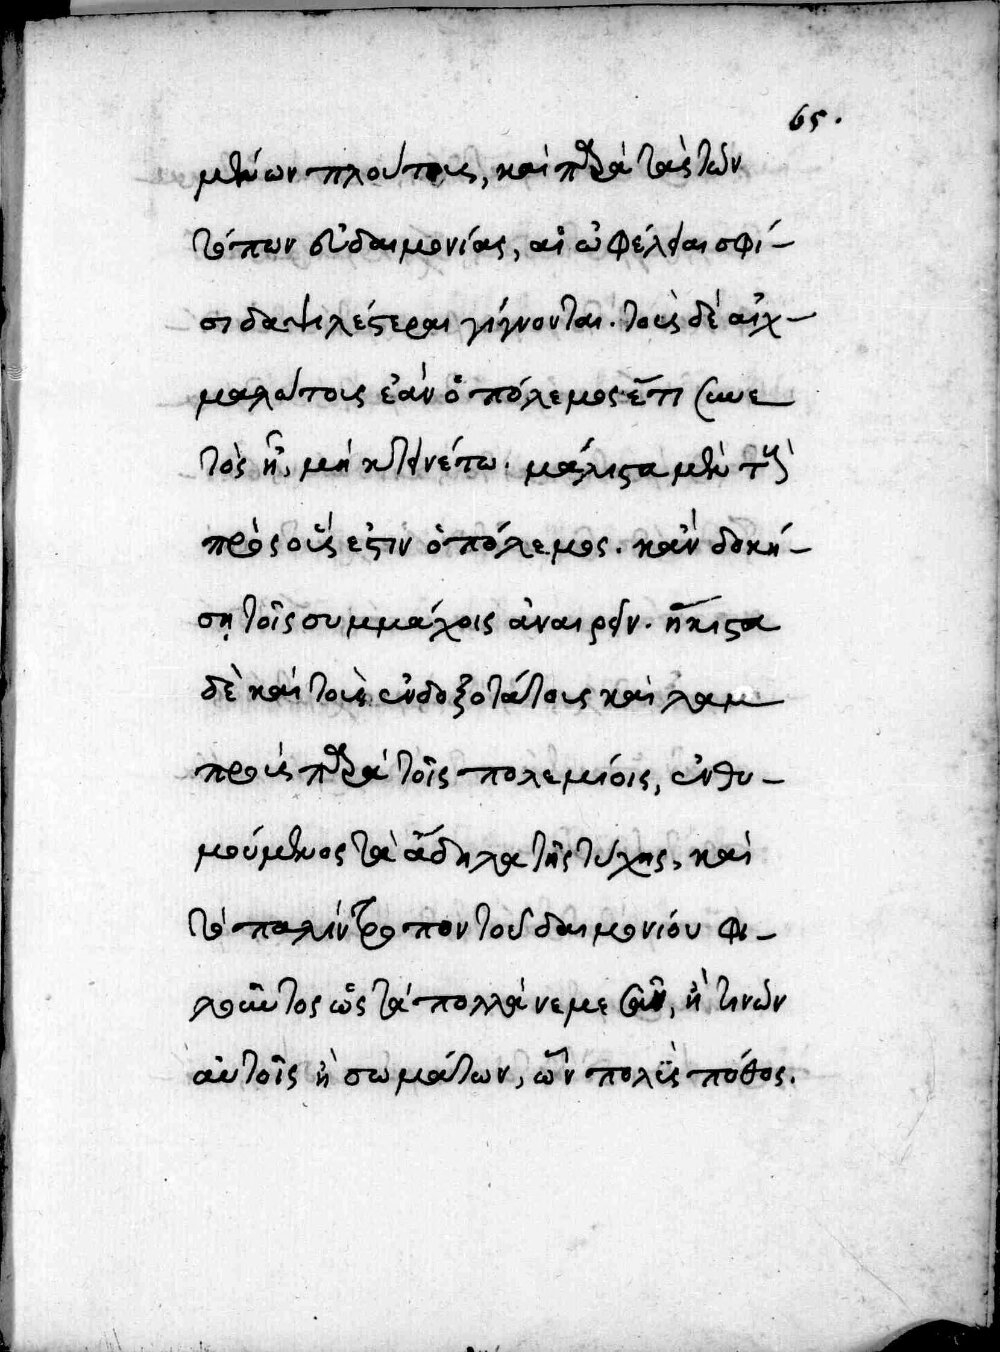 65.
μένων πλούτους, καὶ παρὰ τὰς τῶν
τόπων εὐδαιμονίας, αἱ ὠφέλειαι σφί-
σι δαψιλέστεραι γίγνονται. τοὺς δὲ αἰχ-
μαλώτους ἐὰν ὁ πόλεμος ἔτι συνε
τὸς ᾖ, μὴ κτεινέτω. μάλιστα μὲν τοὺς
πρὸς οὕς ἐστιν ὁ πόλεμος. κἂν δοκή-
σῃ τοῖς συμμάχοις ἀναιρεῖν. ἥκιστα
δὲ καὶ τοὺς ἐνδοξοτάτους καὶ λαμ
προὺς παρὰ τοῖς πολεμίοις, ἐνθυ-
μούμενος τὰ ἄδηλα τῆς τύχης, καὶ
τὸ παλίντροπον τοῦ δαιμονίου φι-
λοῦντος ὡς τὰ πολλὰ νεμεσᾶν, ἢ τινῶν
αὐτοῖς ἢ σωμάτων, ὧν πολὺς πόθος.